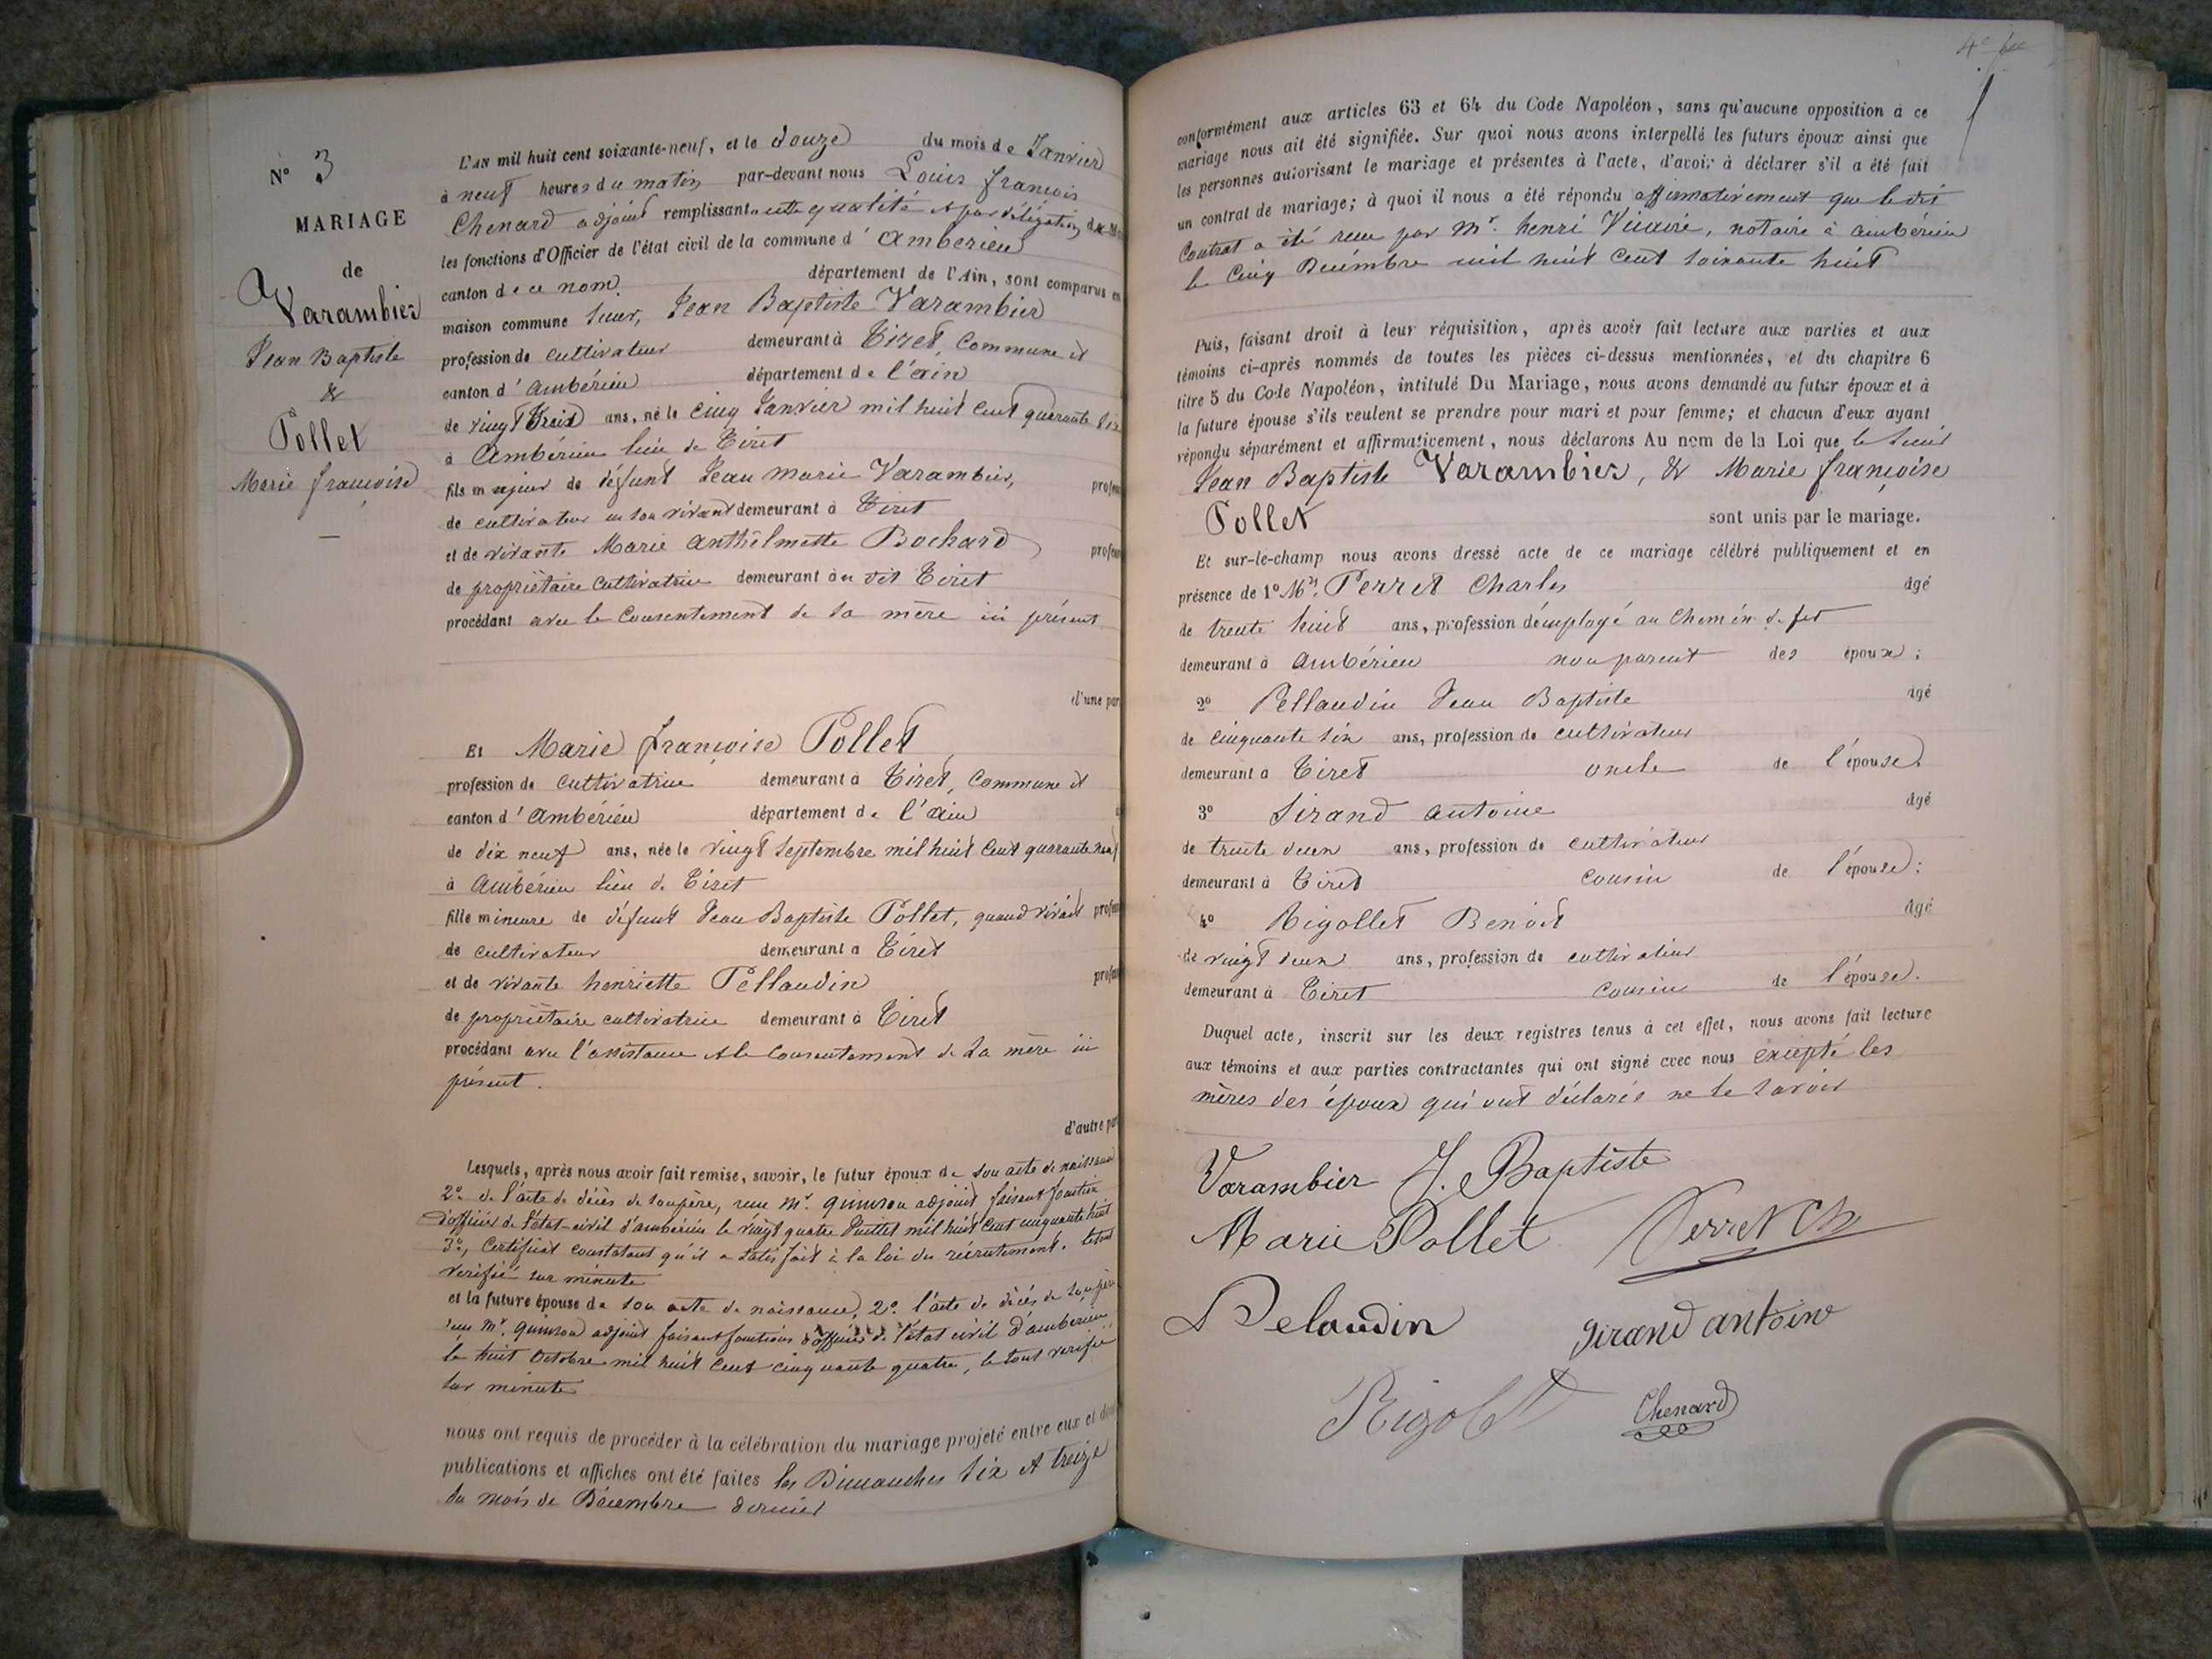 N° 3
MARIAGE
de
Varambier
Jean Baptiste
&
Pollet
Marie françoise
L'AN mil huit cent soixante-neuf, et le douze du mois de Janvier
à neuf heures du matin par-devant nous Louis françois
Chenard adjoint remplissant en cette qualité et par délégation du
les fonctions d'Officier de l'état civil de la commune d'Amberieu
canton de ce nom département de l'Ain, sont comparus en
maison commune sieur, Jean Baptiste Varambier
profession de cultivateur demeurant à Tiret, commune et
canton d'ambérieu département de l'ain
de vingt trois ans, né le cinq Janvier mil huit cent quarante six
à Ambérieu lieu de Tiret
fils majeur de défunt Jean marie Varambier, profess
de cultivateur en son vivant demeurant à Tiret
et de vivante Marie anthelmette Bochard profess
de propriétaire cultivatrice demeurant au dit Tiret
procédant avec le consentement de sa mère ici présent
d'une par
Et Marie françoise Pollet
profession de cultivatrice demeurant à Tiret, commune et
canton d'Ambérieu département de l'ain
de dix neuf ans, née le vingt septembre mil huit cent quarante neuf
à Ambérieu lieu de Tiret
fille mineure de défunt Jean Baptiste Pollet, quand vivait profess
de cultivateur demeurant à Tiret
et de vivante henriette Pellaudin profess
de propriétaire cultivatrice demeurant à Tiret
procédant avec l'assistance et le consentement de sa mère ici
présent.
d'autre par
Lesquels, après nous avoir fait remise, savoir, le futur époux de son acte de naissance
2° de l'acte de décès de son père, reçu Mr quinson adjoint faisant fonction
d'officier de l'état-civil d'ambérieu le vingt quatre Juillet mil huit cent cinquante huit
3°, Certificat constatant qu'il a satisfait à la loi du récrutement. le tout
verifié sur minute
et la future épouse de son acte de naissance, 2° l'acte de décès de son père
reçu Mr quinson adjoint faisant fonctions d'officier de l'état civil d'amberieu
le huit octobre mil huit cent cinquante quatre, le tout verifié
sur minute
nous ont requis de procéder à la célébration du mariage projeté entre eux et dont
publications et affiches ont été faites les Dimanches six et treize
du mois de Décembre dernier
conformément aux articles 63 et 64 du Code Napoléon, sans qu'aucune opposition à ce
mariage nous ait été signifiée. Sur quoi nous avons interpellé les futurs époux ainsi que
les personnes autorisant le mariage et présentes à l'acte, d'avoir à déclarer s'il a été fait
un contrat de mariage; à quoi il nous a été répondu affirmativement que le dit
Contrat a été reçu par Mr. henri Vicaire, notaire à ambérieu
le cinq Decembre mil huit cent soixante huit
Puis, faisant droit à leur réquisition, après avoir fait lecture aux parties et aux
témoins ci-après nommés de toutes les pièces ci-dessus mentionnées, et du chapitre 6
titre 5 du Code Napoléon, intitulé Du Mariage, nous avons demandé au futur époux et à
la future épouse s'ils veulent se prendre pour mari et pour femme; et chacun d'eux ayant
répondu séparément et affirmativement, nous déclarons Au nom de la Loi que le sieur
Jean Baptiste Varambier, & Marie françoise
Pollet sont unis par le mariage.
Et sur-le-champ nous avons dressé acte de ce mariage célébré publiquement et en
présence de 1° Mrs. Perret Charles âgé
de trente huit ans, profession d'employé au Chemin de fer
demeurant à ambérieu non parent des époux;
2° Pellaudin Jean Baptiste âgé
de cinquante six ans, profession de cultivateur
demeurant à Tiret oncle de l'épouse.
3° Sirand antoine âgé
de trente deux ans, profession de cultivateur
demeurant à Tiret cousin de l'épouse;
4° Rigollet Benoit âgé
de vingt deux ans, profession de cultivateur
demeurant à Tiret cousin de l'épouse.
Duquel acte, inscrit sur les deux registres tenus à cet effet, nous avons fait lecture
aux témoins et aux parties contractantes qui ont signé avec nous excepté les
mères des époux qui ont déclaré ne le savoir
Varambier J. Baptiste
Marie Pollet Perret Ch
Pelaudin Sirand antoine
Rigolet Chenard